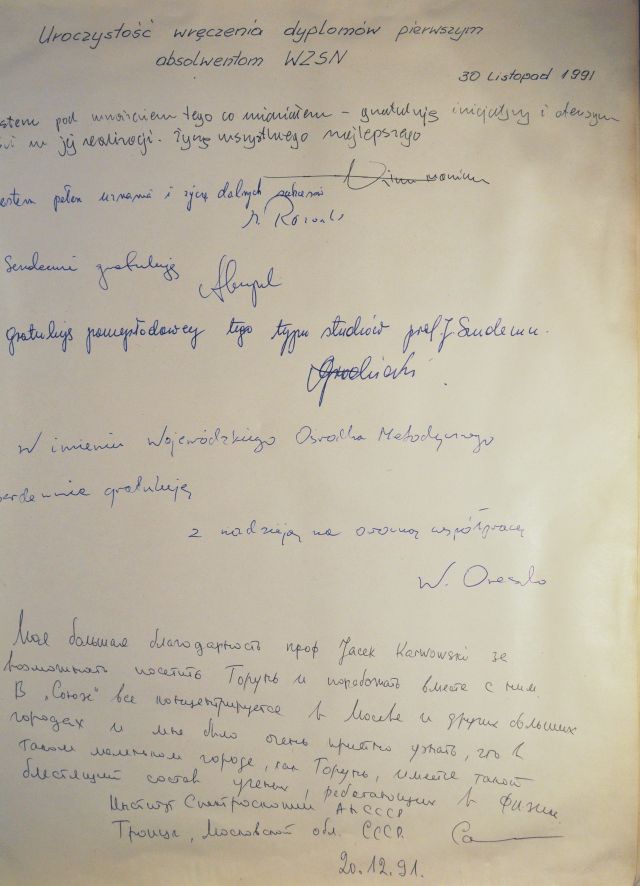 Uroczystość wręczenia dyplomów pierwszym
absolwentom WZSN
30 Listopad 1991
pod wrażeniem tego co widziałem – gratuluję inicjatywy i
w jej realizacji. Życzę wszystkiego najlepszego
estem pełen uznania i życzę dalszych sukcesów
Serdecznie gratuluję
gratuluję pomysłodawcy tego typu studiów prof. J.
Grodzicki
W imieniu Wojewódzkiego Ośrodka Metodycznego
serdecznie gratuluję
z nadzieją na owocną współpracę
W.
Моя большая благодарность проф Jacek Karwowski за
возможность посетить Торунь и поработать вместе с ним.
В „Союзе" все концентрируется в Москве и других больших
городах и мне было очень приятно узнать, что в
таком маленьком городе, как Торунь, имеете такой
блестящий состав ученых, работающих в физике.
Институт Спектроскопии АН СССР
Троицк, Московской обл. СССР
20.12.91.